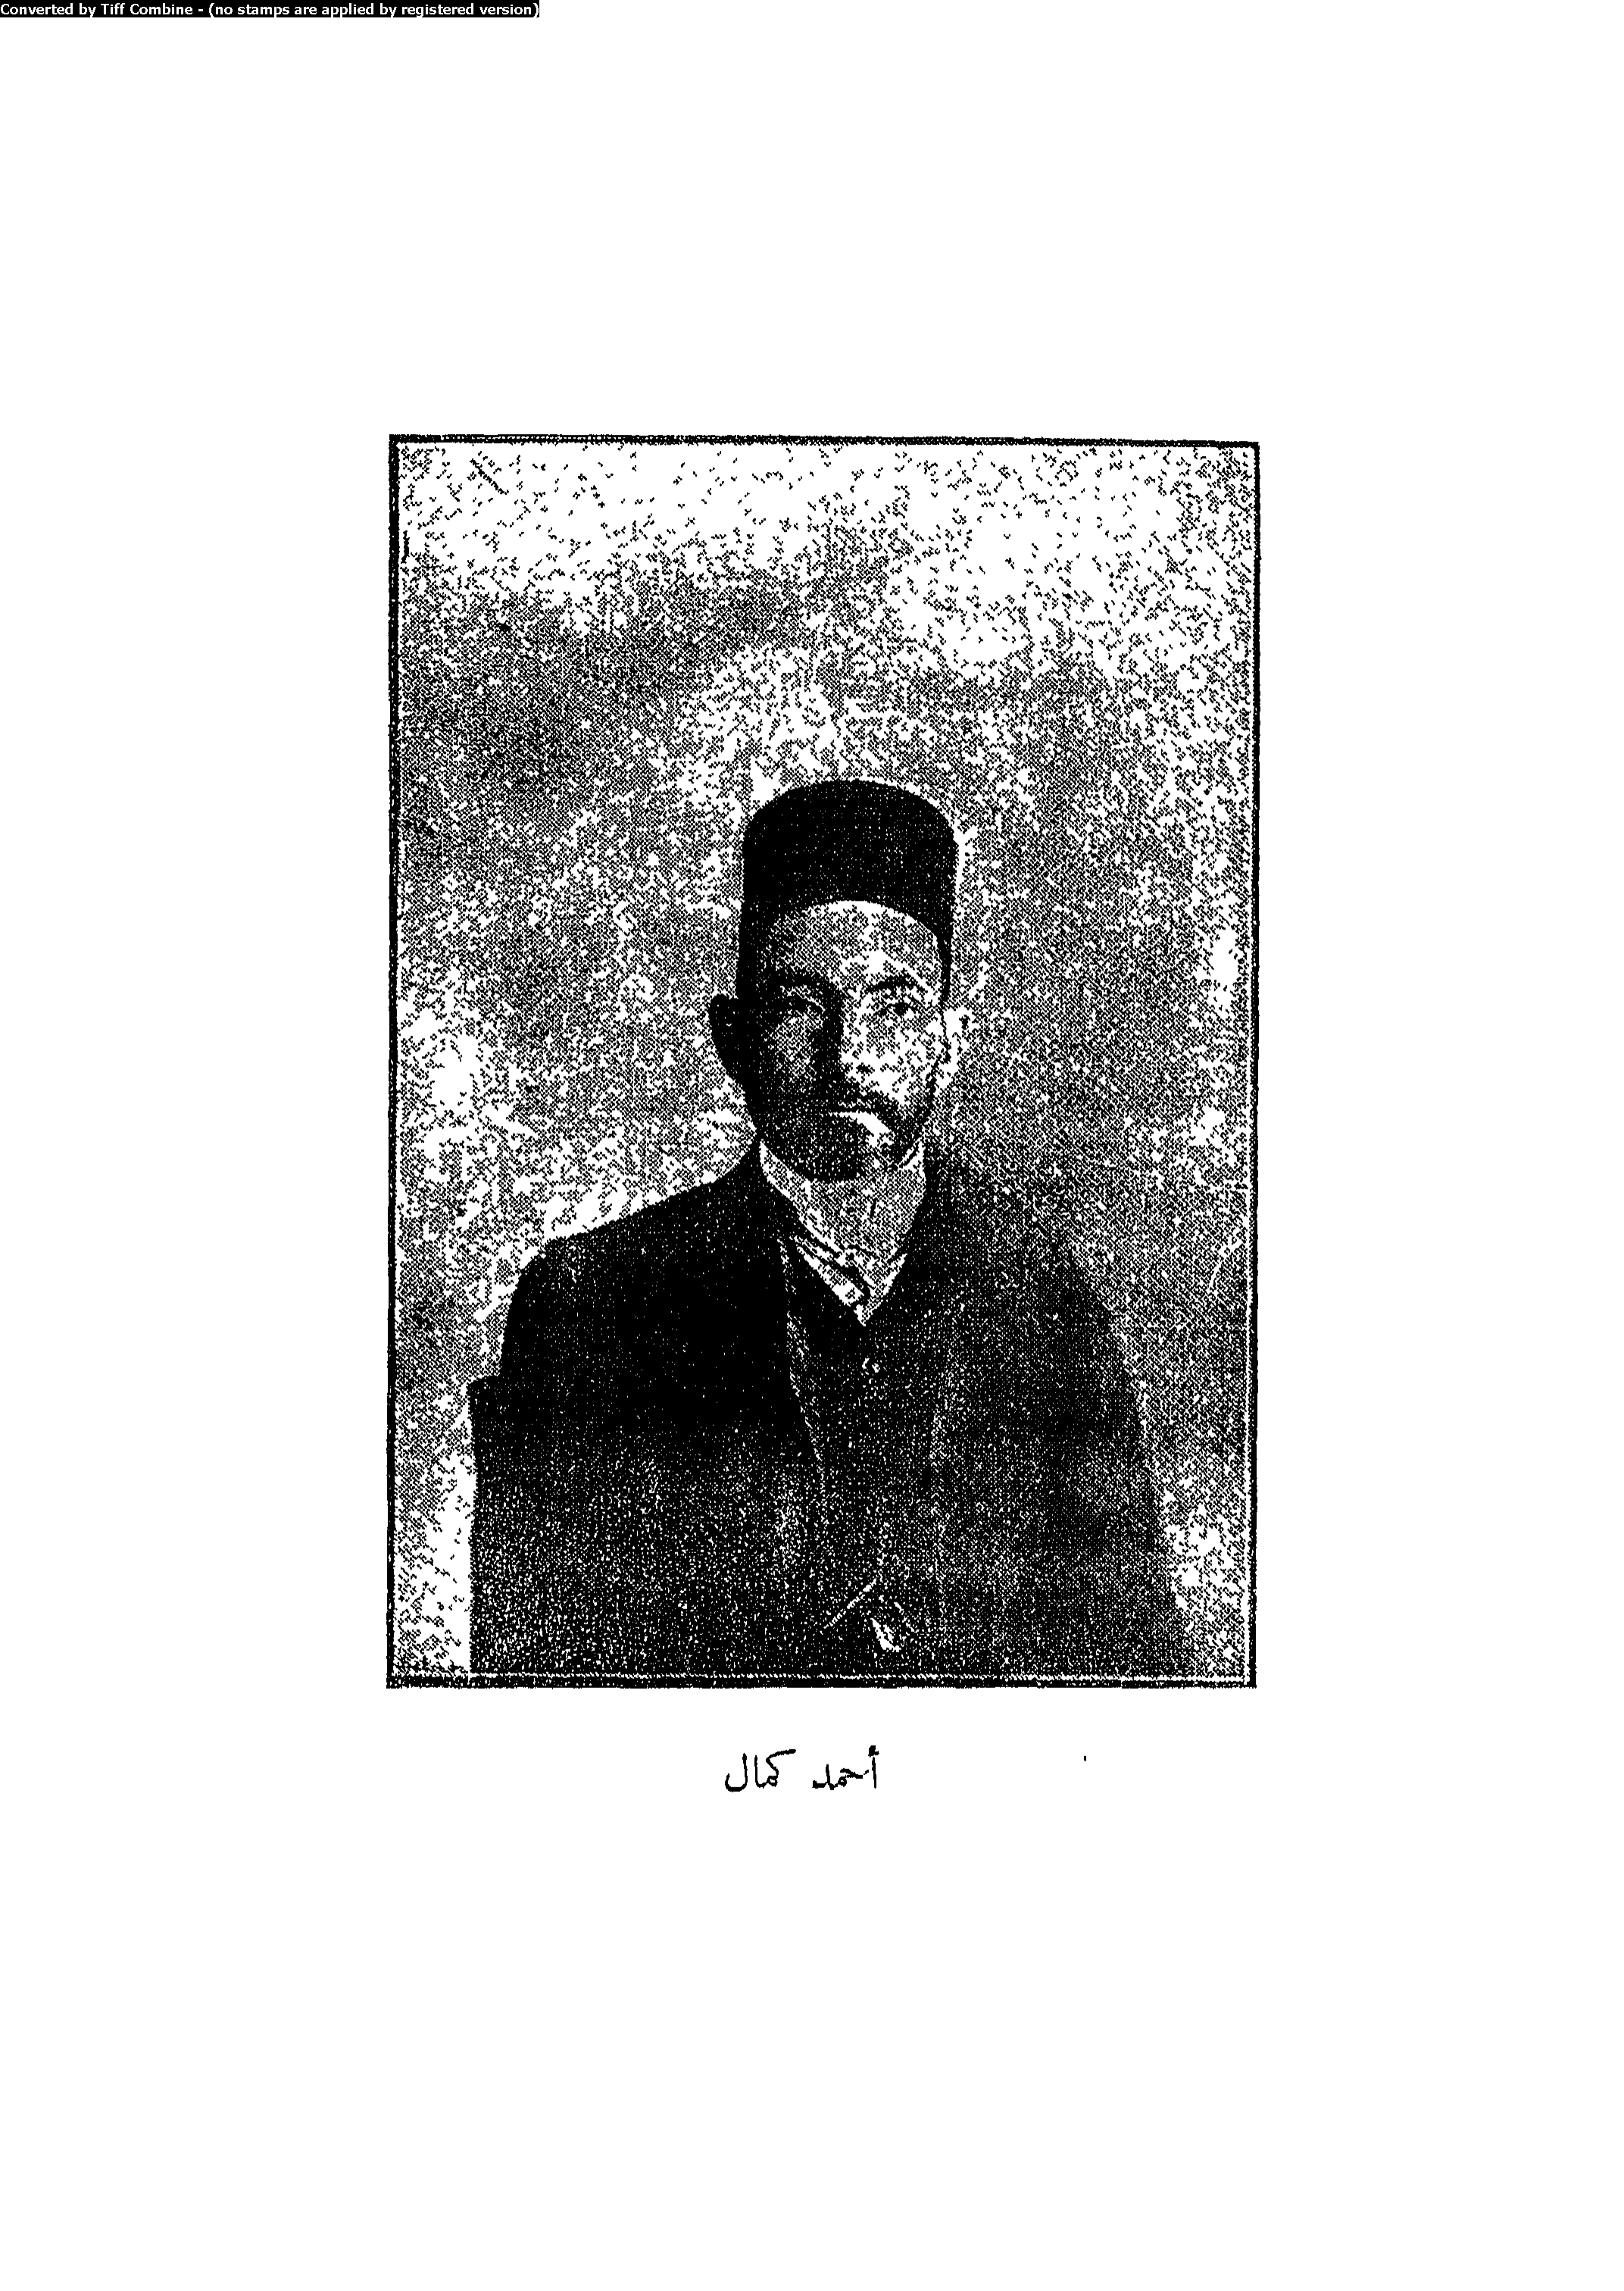 Converted by Tiff Combine - (no stamps are applied by registered version)
أحمد كمال